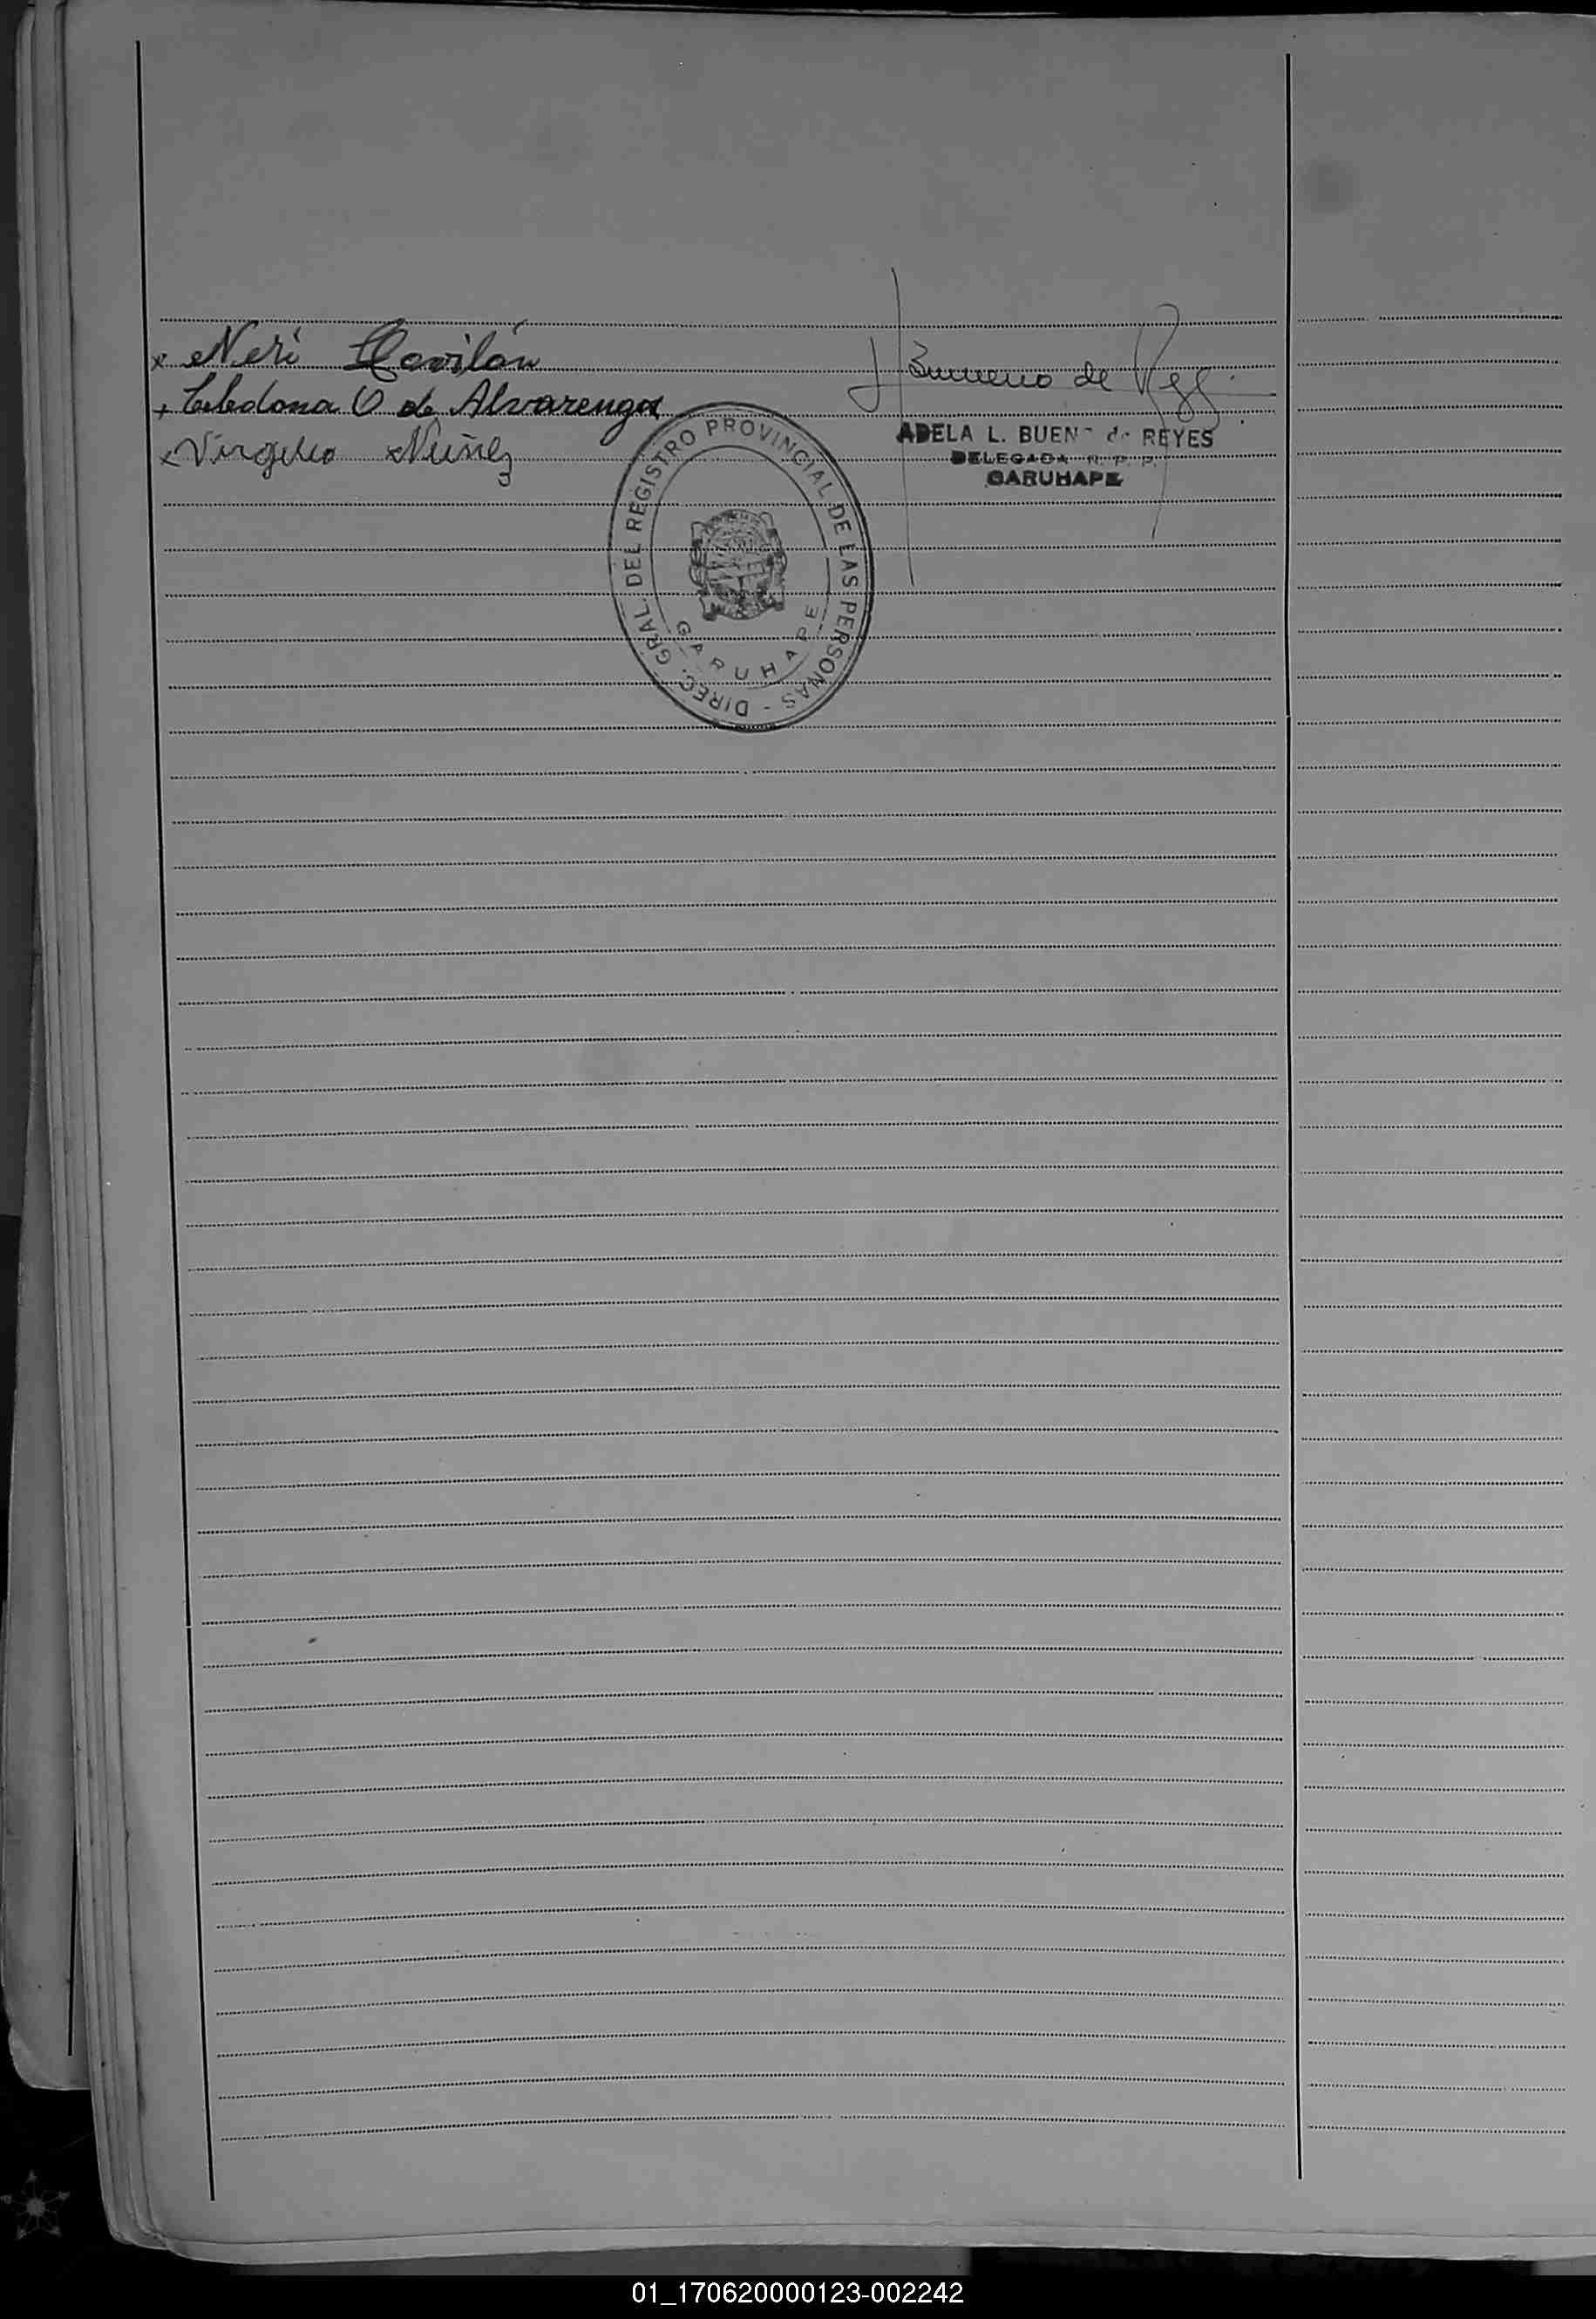 x Neri Gavilán
x Celedona O de Alvarenga
x Virgilio Nuñez
Bueno de Rey
ADELA L. BUENO de REYES
DELEGADA R. P. P.
GARUHAPE
DIREC. GRAL. DEL REGISTRO PROVINCIAL DE LAS PERSONAS -
GARUHAPE
01_170620000123-002242